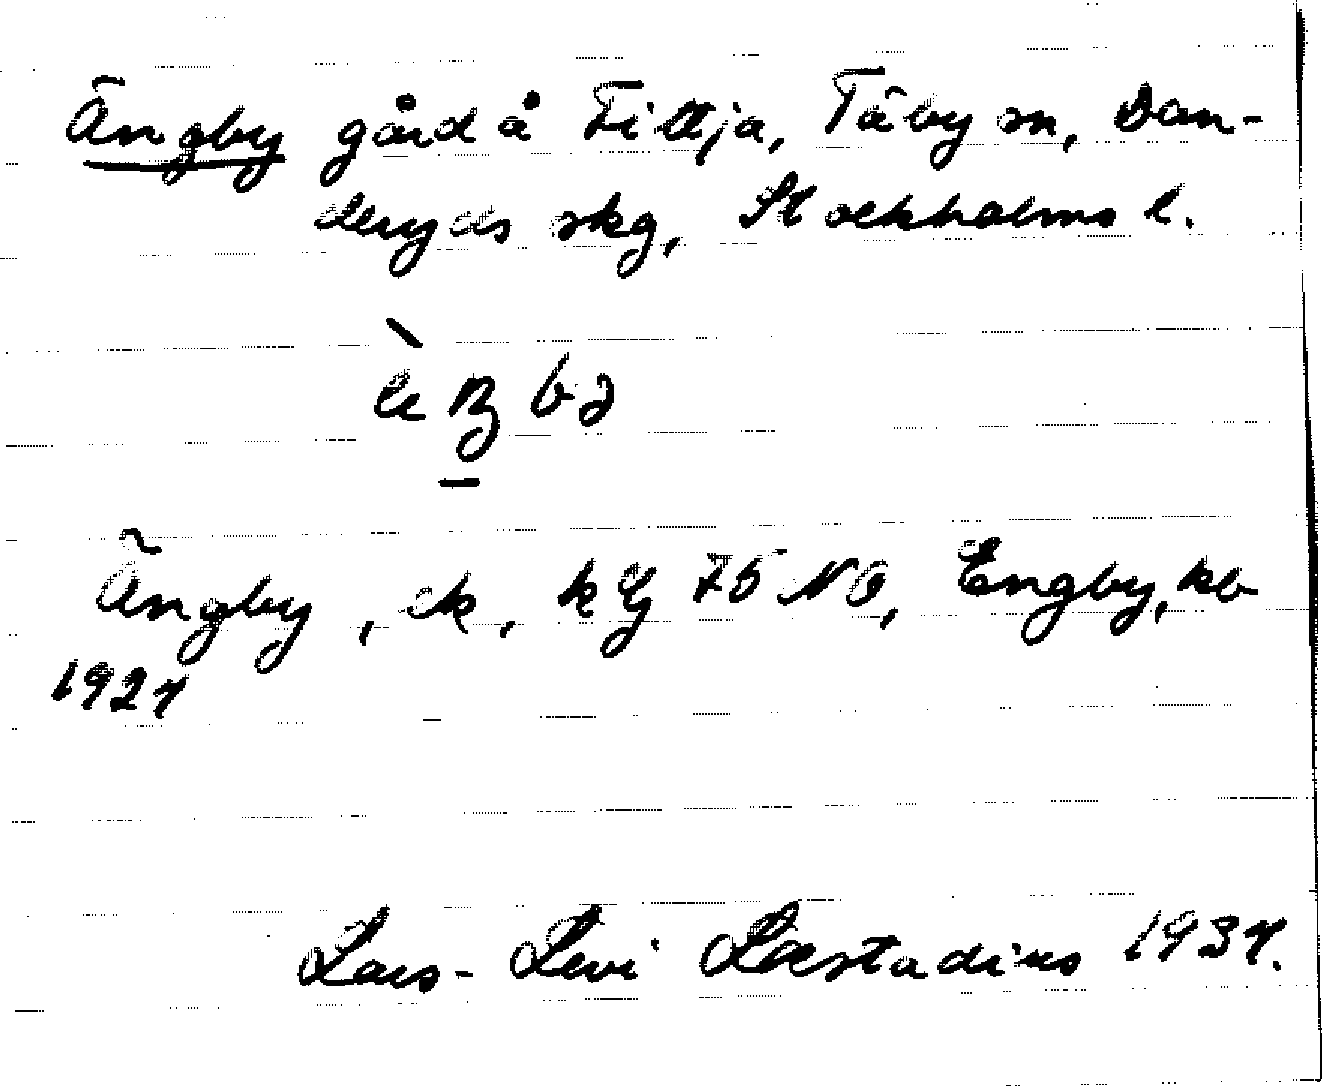 Ängby gård å Tittja, Täby sn, Dan-
deryds skg, Stockholms l.
Ängby, ck, kbl 75 NO, Engby, kb
1927
Lars-Levi Læstadius 1937.